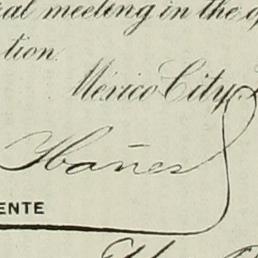 al meeting in the o
tion.
México City,
Ibañes
ENTE